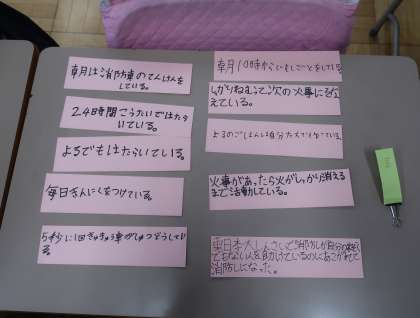 朝月は消防車のてんけんを
している。
24時間こうたいではたら
いている。
よるでもはたらいている。
毎日きんにくをつけている。
5秒に1回きゅうきゅう車がしゅつどうしてる
朝月10時から しごとをしている
しっかりねむって次の火事にそな
えている。
よるのごはんは自分たちで
火事があったら火がしっかり消える
まで活動している。
東日本大しんさいで消防しが自分の
でもない人を助けているのにあこがれて
消防しになった。